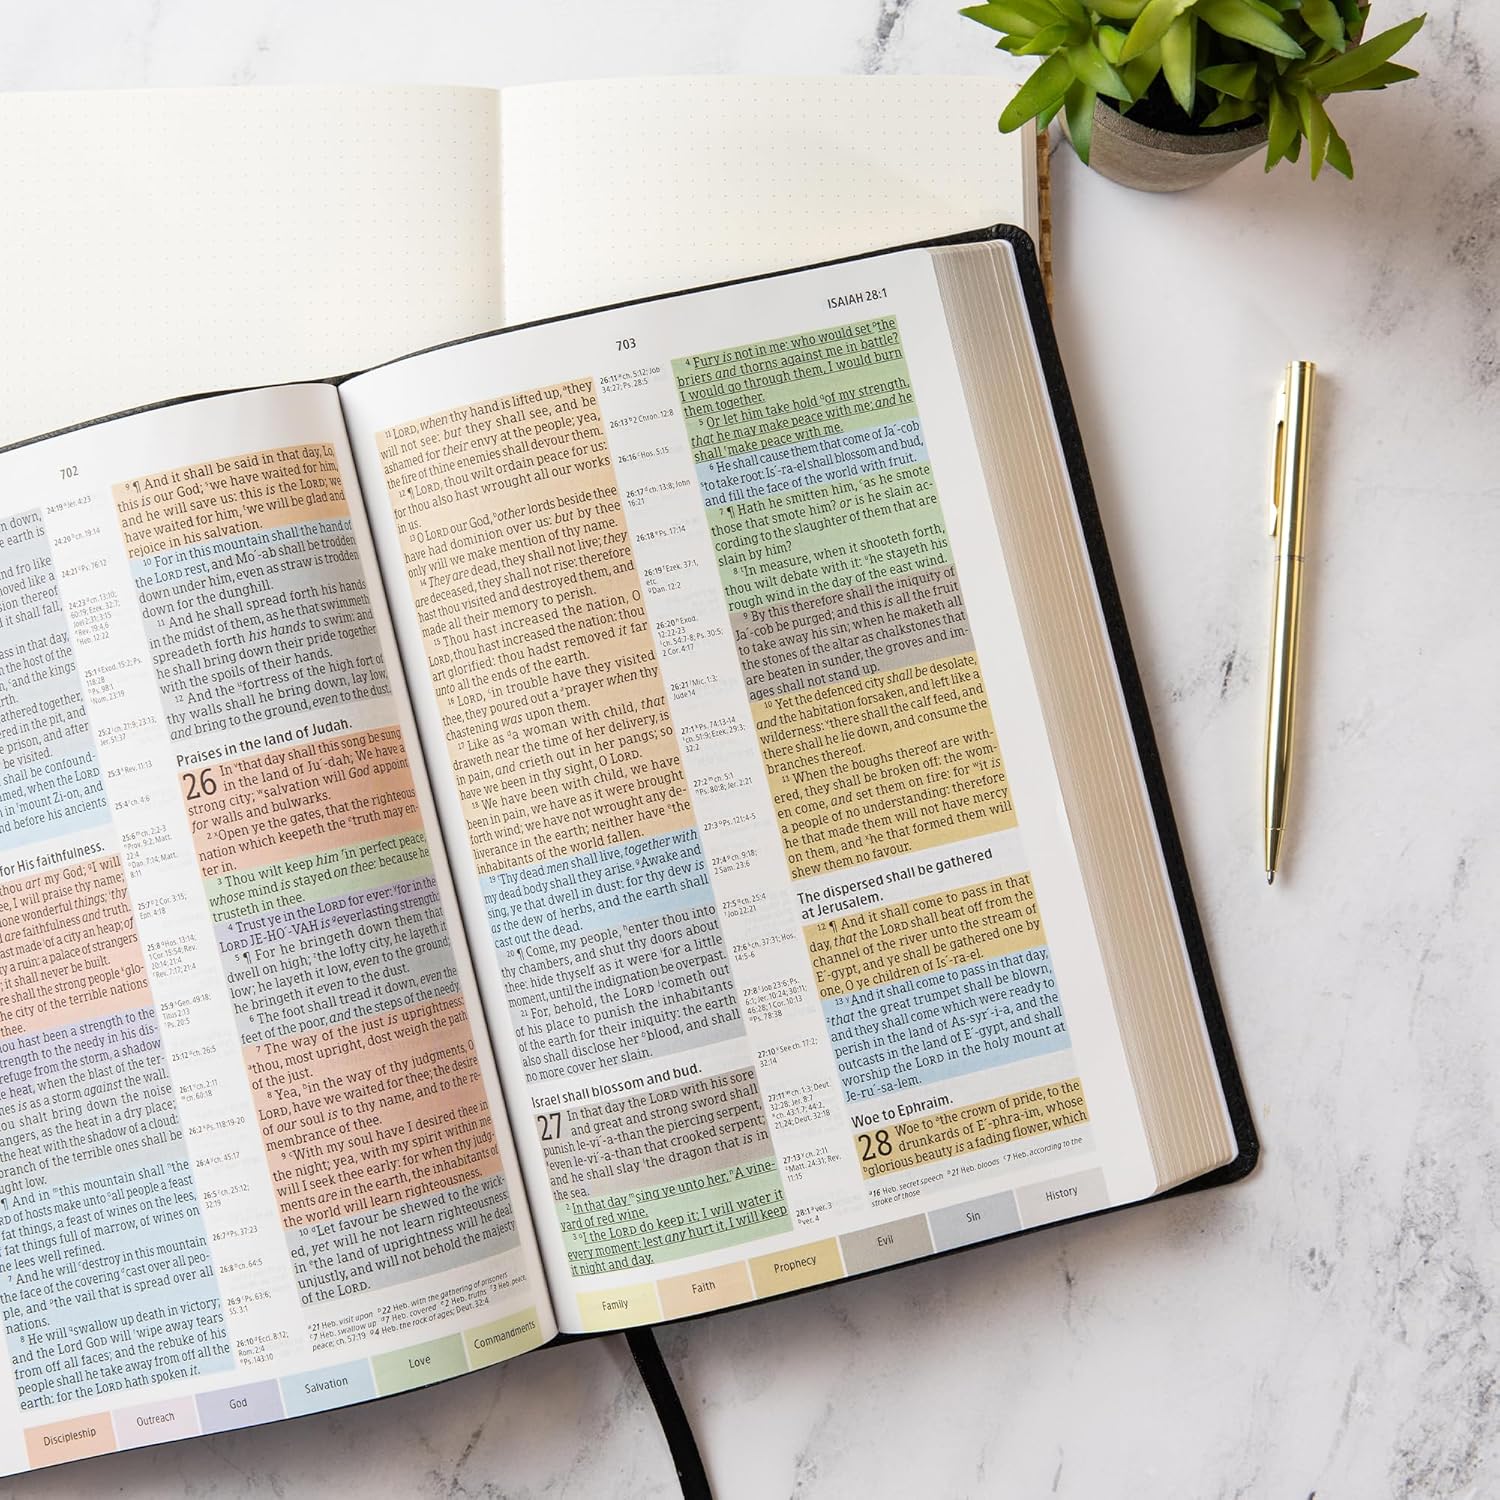 702
24:19 ᵃ Jer. 4:23
24:20 ᵇ ch. 19:14
24:21 ᵍ Ps. 76:12
24:23 ᵃ ch. 13:10;
60:19; Ezek. 32:7;
Joel 2:31; 3:15
ᵇ Rev. 19:4,6
ᶜ Heb. 12:22
25:1 ᵃ Exod. 15:2; Ps.
118:28
ᵇ Ps. 98:1
ᶜ Num. 23:19
25:2 ᵈ ch. 21:9; 23:13;
Jer. 51:37
25:3 ᵉ Rev. 11:13
25:4 ᶠ ch. 4:6
25:6 ᵍ ch. 2:2-3
ʰ Prov. 9:2; Matt.
22:4
ⁱ Dan. 7:14; Matt.
8:11
25:7 ᵏ 2 Cor. 3:15;
Eph. 4:18
25:8 ˡ Hos. 13:14;
1 Cor. 15:54; Rev.
20:14; 21:4
ᵐ Rev. 7:17; 21:4
25:9 ⁿ Gen. 49:18;
Titus 2:13
ᵒ Ps. 20:5
25:12 ᵖ ch. 26:5
26:1 ᑫ ch. 2:11
ʳ ch. 60:18
26:2 ˢ Ps. 118:19-20
26:4 ᵗ ch. 45:17
26:5 ᵘ ch. 25:12;
32:19
26:7 ᵛ Ps. 37:23
26:8 ʷ ch. 64:5
26:9 ˣ Ps. 63:6;
26:10 ʸ Eccl. 8:12;
Rom. 2:4
ᶻ Ps. 143:10
n down,
e earth is
nd fro like
moved like a
sion thereof
d it shall fall,
ass in that day,
the host of the
and the kings
arth.
gathered together,
ered in the pit, and
e prison, and after
be visited.
shall be confound-
med, when the LORD
in mount Zi-on, and
nd before his ancients
for His faithfulness.
thou art my God; I will
e, I will praise thy name;
done wonderful things; thy
d are faithfulness and truth.
ast made of a city an heap; of
y a ruin: a palace of strangers
; it shall never be built.
re shall the strong people glo-
he city of the terrible nations
thee.
hou hast been a strength to the
trength to the needy in his dis-
refuge from the storm, a shadow
e heat, when the blast of the ter-
nes is as a storm against the wall.
ou shalt bring down the noise
angers, as the heat in a dry place;
he heat with the shadow of a cloud:
branch of the terrible ones shall be
ught low.
¶ And in this mountain shall the
RD of hosts make unto all people a feast
fat things, a feast of wines on the lees,
fat things full of marrow, of wines on
he lees well refined.
7 And he will destroy in this mountain
he face of the covering cast over all peo-
ple, and the vail that is spread over all
nations.
8 He will swallow up death in victory;
and the Lord GOD will wipe away tears
from off all faces; and the rebuke of his
people shall he take away from off all the
earth: for the LORD hath spoken it.
9 ¶ And it shall be said in that day, Lo,
this is our God; we have waited for him,
and he will save us: this is the LORD; we
have waited for him, we will be glad and
rejoice in his salvation.
10 For in this mountain shall the hand of
the LORD rest, and Mo´-ab shall be trodden
down under him, even as straw is trodden
down for the dunghill.
11 And he shall spread forth his hands
in the midst of them, as he that swimmeth
spreadeth forth his hands to swim: and
he shall bring down their pride together
with the spoils of their hands.
12 And the fortress of the high fort of
thy walls shall he bring down, lay low,
and bring to the ground, even to the dust.
Praises in the land of Judah.
26 In that day shall this song be sung
in the land of Ju´-dah; We have a
strong city; salvation will God appoint
for walls and bulwarks.
2 Open ye the gates, that the righteous
nation which keepeth the truth may en-
ter in.
3 Thou wilt keep him in perfect peace,
whose mind is stayed on thee: because he
trusteth in thee.
4 Trust ye in the LORD for ever: for in the
LORD JE-HO´-VAH is everlasting strength:
5 ¶ For he bringeth down them that
dwell on high; the lofty city, he layeth it
low; he layeth it low, even to the ground;
he bringeth it even to the dust.
6 The foot shall tread it down, even the
feet of the poor, and the steps of the needy.
7 The way of the just is uprightness:
thou, most upright, dost weigh the path
of the just.
8 Yea, in the way of thy judgments, O
LORD, have we waited for thee; the desire
of our soul is to thy name, and to the re-
membrance of thee.
9 With my soul have I desired thee in
the night; yea, with my spirit within me
will I seek thee early: for when thy judg-
ments are in the earth, the inhabitants of
the world will learn righteousness.
10 Let favour be shewed to the wick-
ed, yet will he not learn righteousness:
in the land of uprightness will he deal
unjustly, and will not behold the majesty
of the LORD.
21 Heb. visit upon 22 Heb. with the gathering of prisoners
7 Heb. swallow up 7 Heb. covered 2 Heb. truths 3 Heb. peace,
peace; ch. 57:19 4 Heb. the rock of ages; Deut. 32:4
Discipleship
Outreach
God
Salvation
Love
Commandments
703
ISAIAH 28:1
11 LORD, when thy hand is lifted up, they
will not see: but they shall see, and be
ashamed for their envy at the people; yea,
the fire of thine enemies shall devour them.
12 ¶ LORD, thou wilt ordain peace for us:
for thou also hast wrought all our works
in us.
13 O LORD our God, other lords beside thee
have had dominion over us: but by thee
only will we make mention of thy name.
14 They are dead, they shall not live; they
are deceased, they shall not rise: therefore
hast thou visited and destroyed them, and
made all their memory to perish.
15 Thou hast increased the nation, O
LORD, thou hast increased the nation: thou
art glorified: thou hadst removed it far
unto all the ends of the earth.
16 LORD, in trouble have they visited
thee, they poured out a prayer when thy
chastening was upon them.
17 Like as a woman with child, that
draweth near the time of her delivery, is
in pain, and crieth out in her pangs; so
have we been in thy sight, O LORD.
18 We have been with child, we have
been in pain, we have as it were brought
forth wind; we have not wrought any de-
liverance in the earth; neither have the
inhabitants of the world fallen.
19 Thy dead men shall live, together with
my dead body shall they arise. Awake and
sing, ye that dwell in dust: for thy dew is
as the dew of herbs, and the earth shall
cast out the dead.
20 ¶ Come, my people, enter thou into
thy chambers, and shut thy doors about
thee: hide thyself as it were for a little
moment, until the indignation be overpast.
21 For, behold, the LORD cometh out
of his place to punish the inhabitants
of the earth for their iniquity: the earth
also shall disclose her blood, and shall
no more cover her slain.
Israel shall blossom and bud.
27 In that day the LORD with his sore
and great and strong sword shall
punish le-vi´-a-than the piercing serpent,
even le-vi´-a-than that crooked serpent;
and he shall slay the dragon that is in
the sea.
2 In that day sing ye unto her, A vine-
yard of red wine.
3 I the LORD do keep it; I will water it
every moment: lest any hurt it, I will keep
it night and day.
26:11 ch. 5:12; Job
34:27; Ps. 28:5
26:13 2 Chron. 12:8
26:16 Hos. 5:15
26:17 ch. 13:8; John
16:21
26:18 Ps. 17:14
26:19 Ezek. 37:1,
etc.
Dan. 12:2
26:20 Exod.
12:22-23
ch. 54:7-8; Ps. 30:5;
2 Cor. 4:17
26:21 Mic. 1:3;
Jude 14
27:1 Ps. 74:13-14
ch. 51:9; Ezek. 29:3;
32:2
27:2 ch. 5:1
Ps. 80:8; Jer. 2:21
27:3 Ps. 121:4-5
27:4 ch. 9:18;
2 Sam. 23:6
27:5 ch. 25:4
Job 22:21
27:6 ch. 37:31; Hos.
14:5-6
27:8 Job 23:6; Ps.
6:1; Jer. 10:24; 30:11;
46:28; 1 Cor. 10:13
Ps. 78:38
27:10 See ch. 17:2;
32:14
27:11 ch. 1:3; Deut.
32:28; Jer. 8:7
ch. 43:1,7; 44:2,
21,24; Deut. 32:18
27:13 ch. 2:11
Matt. 24:31; Rev.
11:15
28:1 ver. 3
ver. 4
4 Fury is not in me: who would set the
briers and thorns against me in battle?
I would go through them, I would burn
them together.
5 Or let him take hold of my strength,
that he may make peace with me; and he
shall make peace with me.
6 He shall cause them that come of Ja´-cob
to take root: Is´-ra-el shall blossom and bud,
and fill the face of the world with fruit.
7 ¶ Hath he smitten him, as he smote
those that smote him? or is he slain ac-
cording to the slaughter of them that are
slain by him?
8 In measure, when it shooteth forth,
thou wilt debate with it: he stayeth his
rough wind in the day of the east wind.
9 By this therefore shall the iniquity of
Ja´-cob be purged; and this is all the fruit
to take away his sin; when he maketh all
the stones of the altar as chalkstones that
are beaten in sunder, the groves and im-
ages shall not stand up.
10 Yet the defenced city shall be desolate,
and the habitation forsaken, and left like a
wilderness: there shall the calf feed, and
there shall he lie down, and consume the
branches thereof.
11 When the boughs thereof are with-
ered, they shall be broken off: the wom-
en come, and set them on fire: for it is
a people of no understanding: therefore
he that made them will not have mercy
on them, and he that formed them will
shew them no favour.
The dispersed shall be gathered
at Jerusalem.
12 ¶ And it shall come to pass in that
day, that the LORD shall beat off from the
channel of the river unto the stream of
E´-gypt, and ye shall be gathered one by
one, O ye children of Is´-ra-el.
13 And it shall come to pass in that day,
that the great trumpet shall be blown,
and they shall come which were ready to
perish in the land of As-syr´-i-a, and the
outcasts in the land of E´-gypt, and shall
worship the LORD in the holy mount at
Je-ru´-sa-lem.
Woe to Ephraim.
28 Woe to the crown of pride, to the
drunkards of E´-phra-im, whose
glorious beauty is a fading flower, which
16 Heb. secret speech 21 Heb. bloods 7 Heb. according to the
stroke of those
Family
Faith
Prophecy
Evil
Sin
History